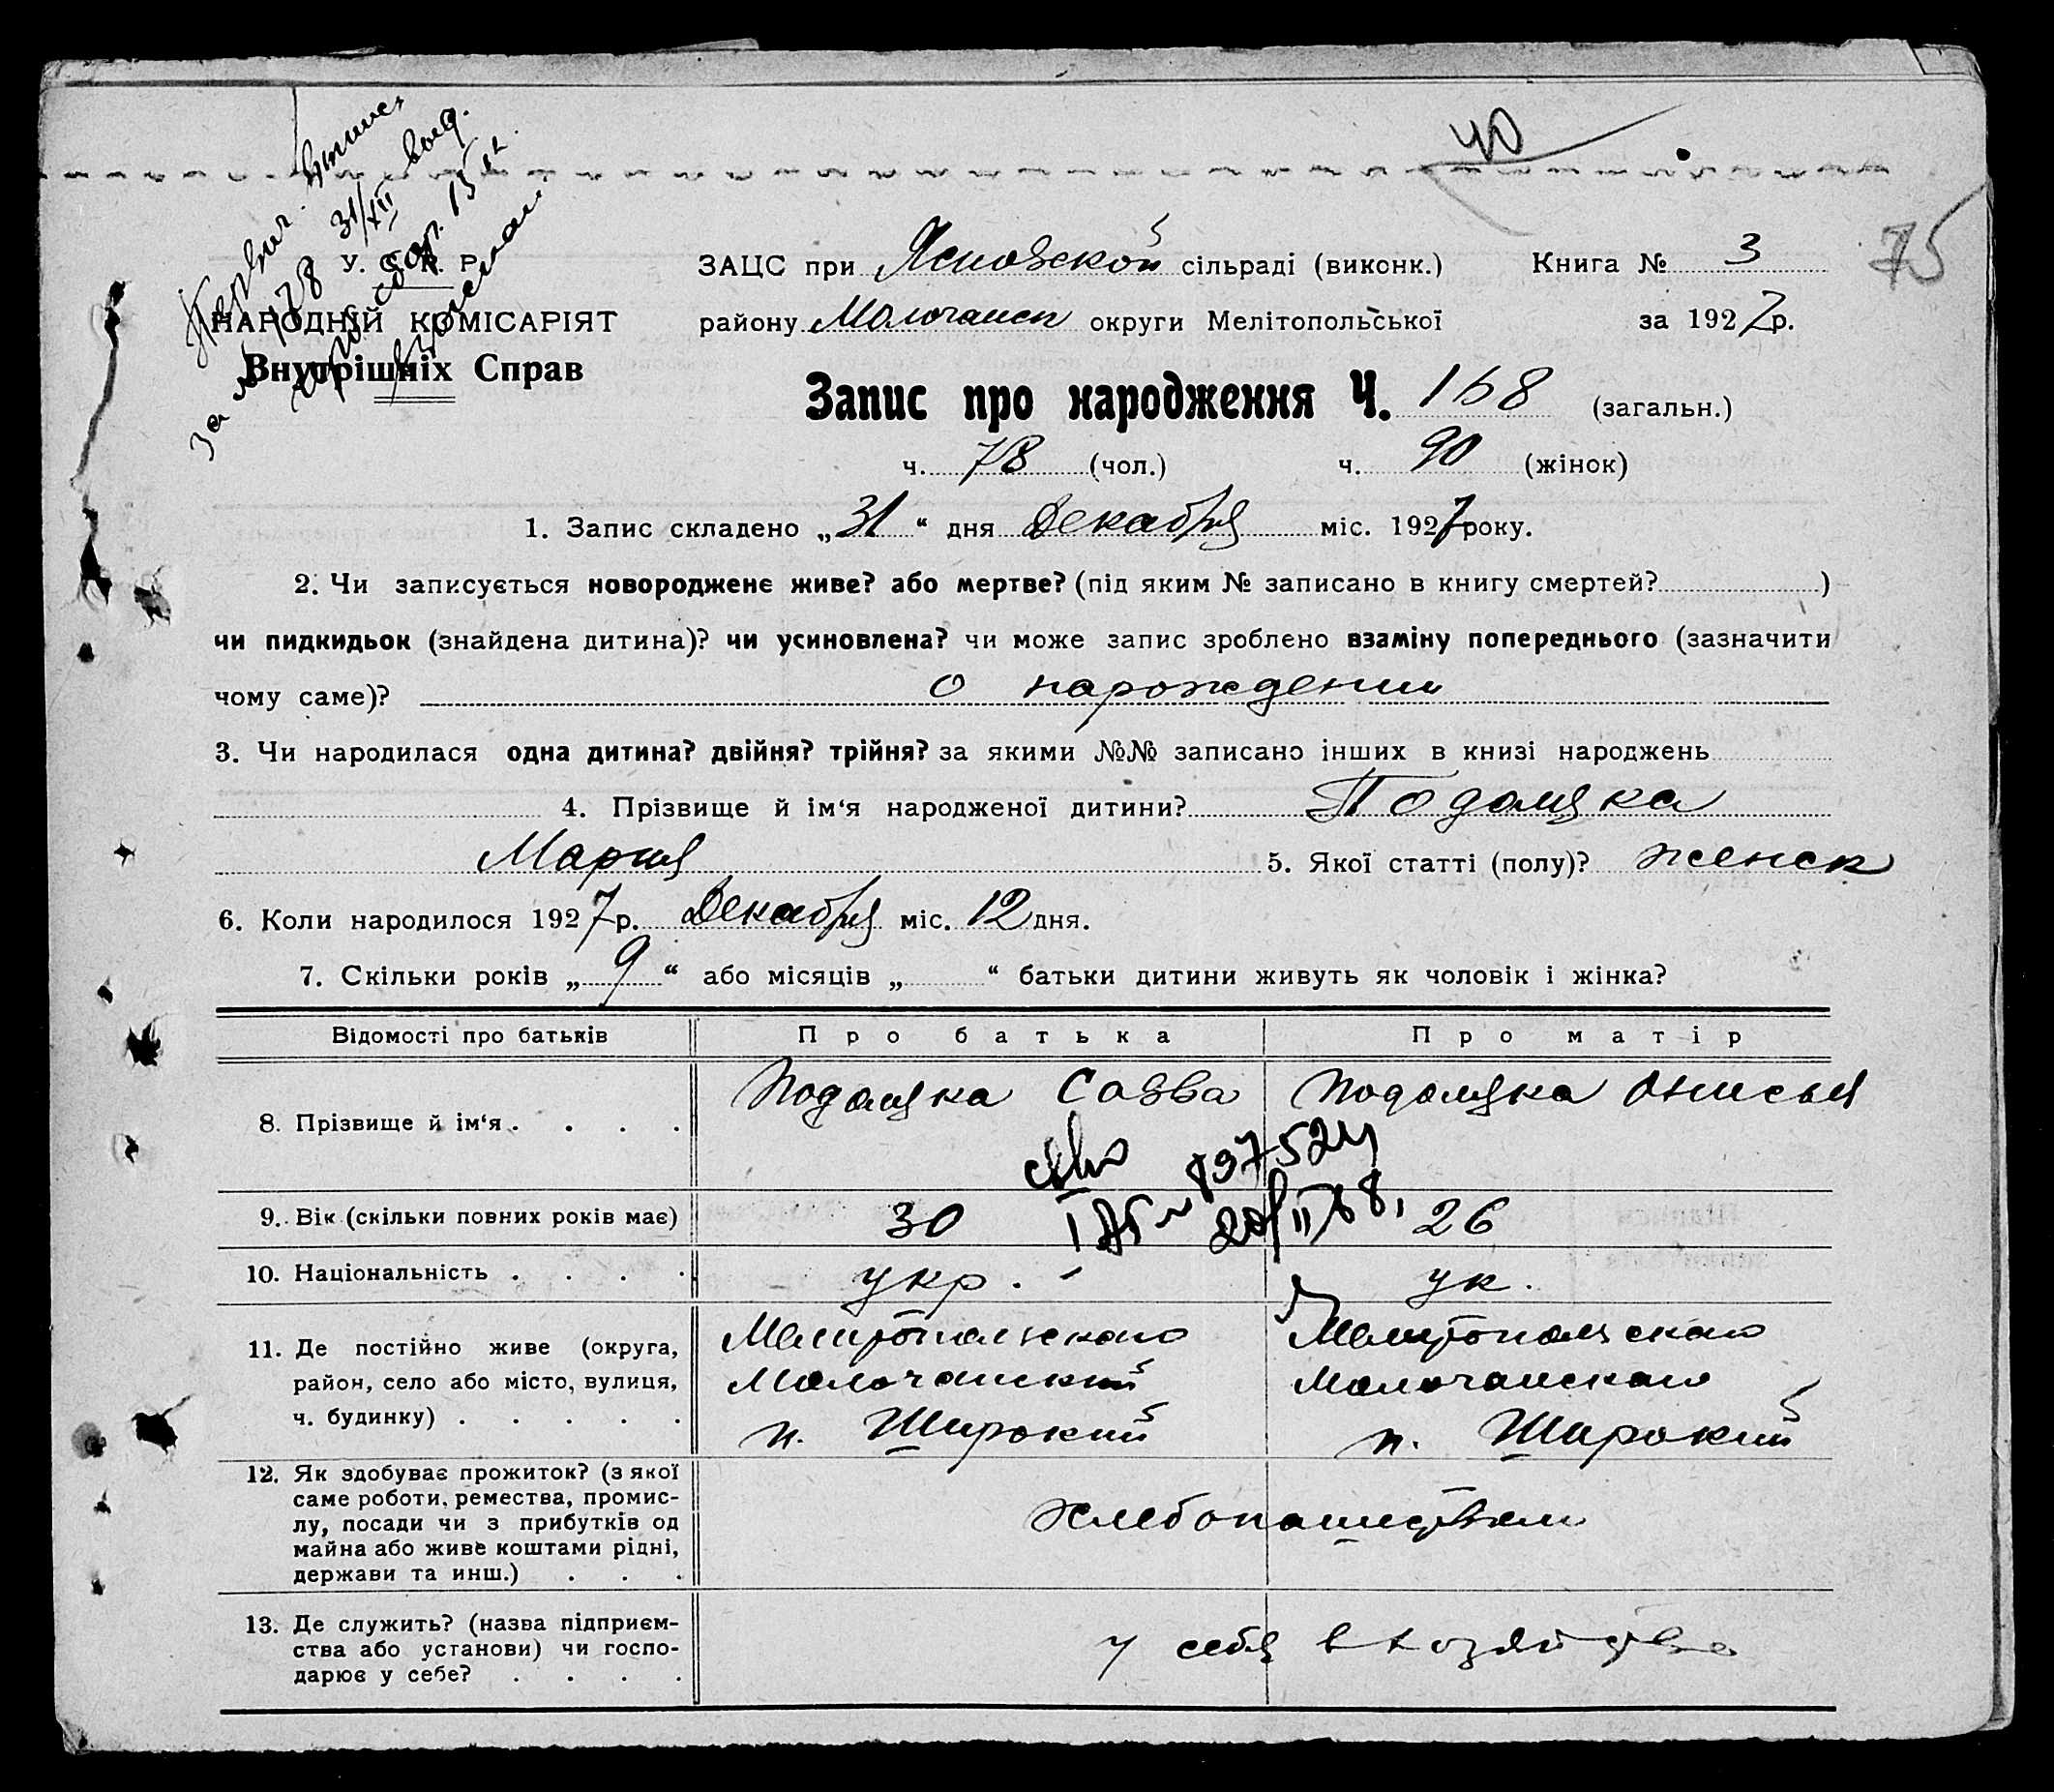 40
75
У. С. Р. Р.
НАРОДНІЙ КОМІСАРІЯТ
Внутрішніх Справ
Первич.
за № 178 31/XII
ЗАЦС при Ясновской сільраді (виконк.) Книга № 3
району Молочанск округи Мелітопольської за 1927р.
Запис про народження Ч. 168 (загальн.)
ч. 78 (чол.) ч. 90 (жінок)
1. Запис складено „31“ дня Декабря міс. 1927 року.
2. Чи записується новородженє живе? або мертве? (під яким № записано в книгу смертей? )
чи пидкидьок (знайдена дитина)? чи усиновлена? чи може запис зроблено взаміну попереднього (зазначити
чому саме)? о нарождении
3. Чи народилася одна дитина? двійня? трійня? за якими №№ записано інших в книзі народжень
4. Прізвище й ім‘я народженої дитини? Подоляка
Мария 5. Якої статті (полу)? женск
6. Коли народилося 1927р. Декабря міс. 12 дня.
7. Скільки років „9“ або місяців „ “ батьки дитини живуть як чоловік і жінка?
Відомості про батьків Про батька Про матір
8. Прізвище й ім‘я . . . . Подоляка Савва Подоляка Анисья
9. Вік (скільки повних років має) 30 26
10. Національність . . . . укр. ук.
11. Де постійно живе (округа,
район, село або місто, вулиця,
ч. будинку) . . . . .
Мелитопольскаго
Молочанский
п. Широкий
Мелитопольскаго
Молочанскаго
п. Широкий
12. Як здобуває прожиток? (з якої
саме роботи, ремества, промис-
лу, посади чи з прибутків од
майна або живе коштами рідні,
держави та инш.) . . .
хлебопашеством
13. Де служить? (назва підприєм-
ства або установи) чи госпо-
дарює у себе? . . . .
у себя в хозяйстве